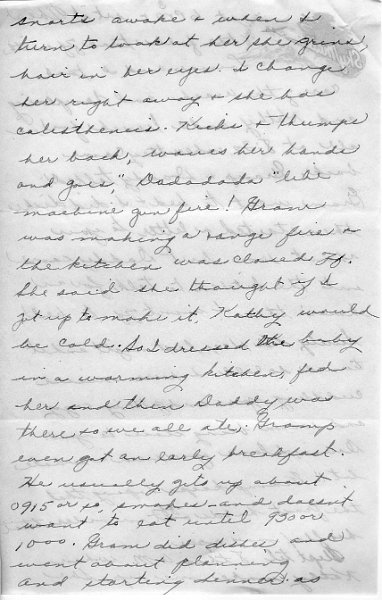 snorts awake & when I
turn to look at her she grins,
hair in her eyes. I change
her right away & she has
calisthenics. Kicks & thumps
her back, waves her hands
and goes, "Dadadada" like
machine gun fire! Gram
was making a range fire &
the kitchen was closed off.
She said she thought if I
got up to make it, Kathy would
be cold. So I dressed the baby
in a warming kitchen, fed
her and then Daddy was
there so we all ate. Gramp
even got an early breakfast.
He usually gets up about
0915 or so, smokes and doesn't
want to eat until 930 or
1000. Gram did dishes and
went about planning
and starting dinner as